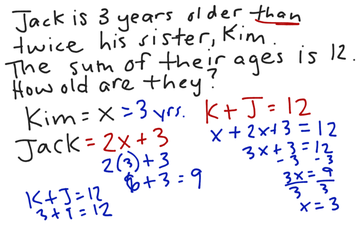 Jack is 3 years older than
twice his sister, Kim.
The sum of their ages is 12.
How old are they?
Kim = x = 3 yrs.
Jack = 2x + 3
2(3) + 3
6 + 3 = 9
K + J = 12
3 + 9 = 12
K + J = 12
x + 2x + 3 = 12
3x + 3 = 12
- 3 - 3
3x = 9
3 3
x = 3